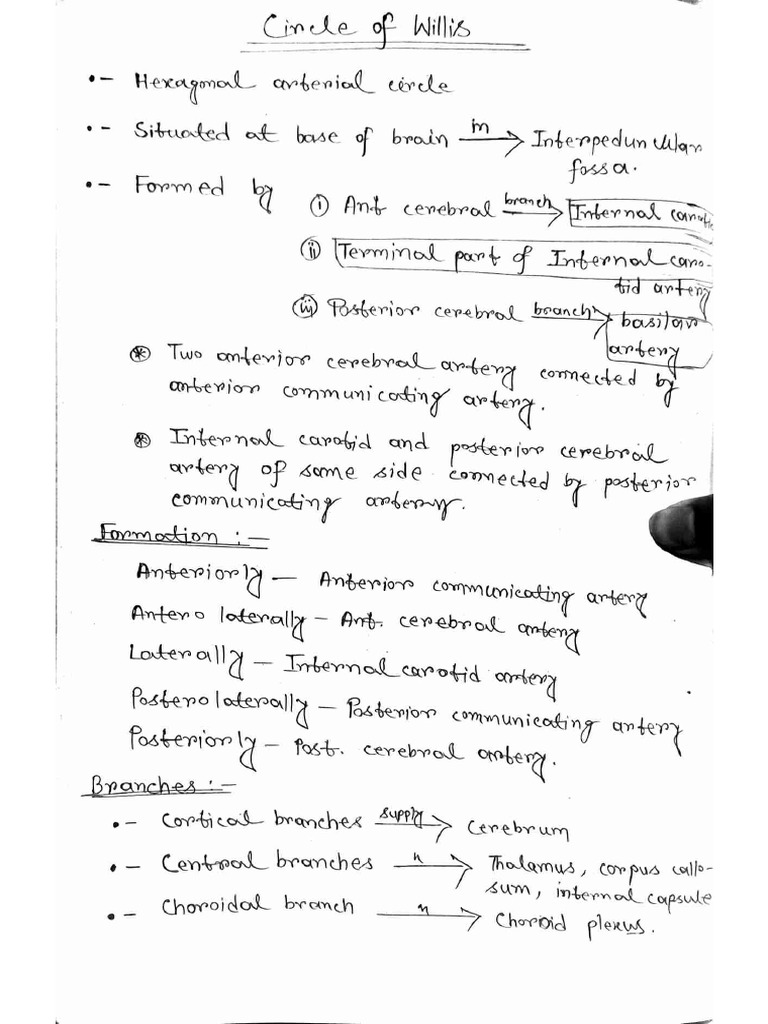 Circle of Willis
•- Hexagonal arterial circle
•- Situated at base of brain in → Interpeduncular
fossa.
•- Formed by
i Ant cerebral branch → Internal carotic
ii Terminal part of Internal caro-
tid artery
iii Posterior cerebral branch → basilar
artery
* Two anterior cerebral artery connected by
anterior communicating artery.
* Internal carotid and posterior cerebral
artery of same side connected by posterior
communicating artery.
Formation :-
Anteriorly - Anterior communicating artery
Antero laterally - Ant. cerebral artery
Laterally - Internal carotid artery
Postero laterally - Posterior communicating artery
Posteriorly - Post. cerebral artery.
Branches :-
•- Cortical branches supply → Cerebrum
•- Central branches " → Thalamus, corpus callo-
sum, internal capsule
•- Choroidal branch " → Choroid plexus.